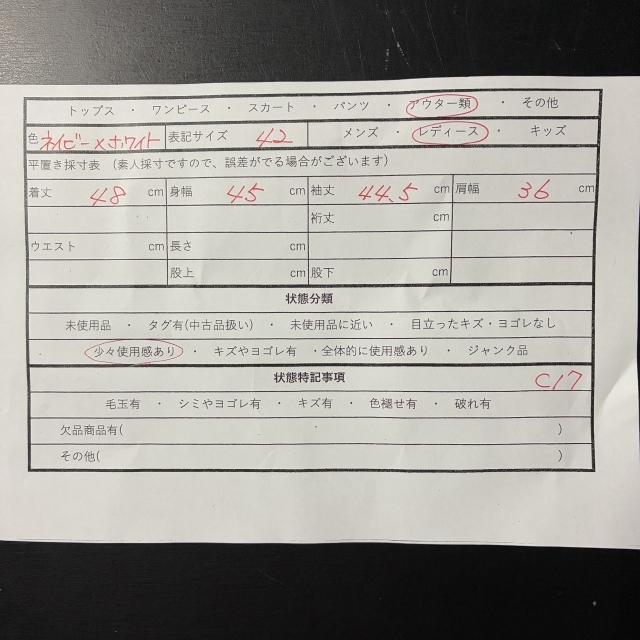 トップス ・ ワンピース ・ スカート ・ パンツ ・ アウター類 ・ その他
色 ネイビー×ホワイト 表記サイズ 42 メンズ ・ レディース ・ キッズ
平置き採寸表 （素人採寸ですので、誤差がでる場合がございます）
着丈 48 cm 身幅 45 cm 袖丈 44.5 cm 肩幅 36 cm
裄丈 cm
ウエスト cm 長さ cm
股上 cm 股下 cm
状態分類
未使用品 ・ タグ有(中古品扱い) ・ 未使用品に近い ・ 目立ったキズ・ヨゴレなし
少々使用感あり ・ キズやヨゴレ有 ・全体的に使用感あり ・ ジャンク品
状態特記事項 C17
毛玉有 ・ シミやヨゴレ有 ・ キズ有 ・ 色褪せ有 ・ 破れ有
欠品商品有( )
その他( )